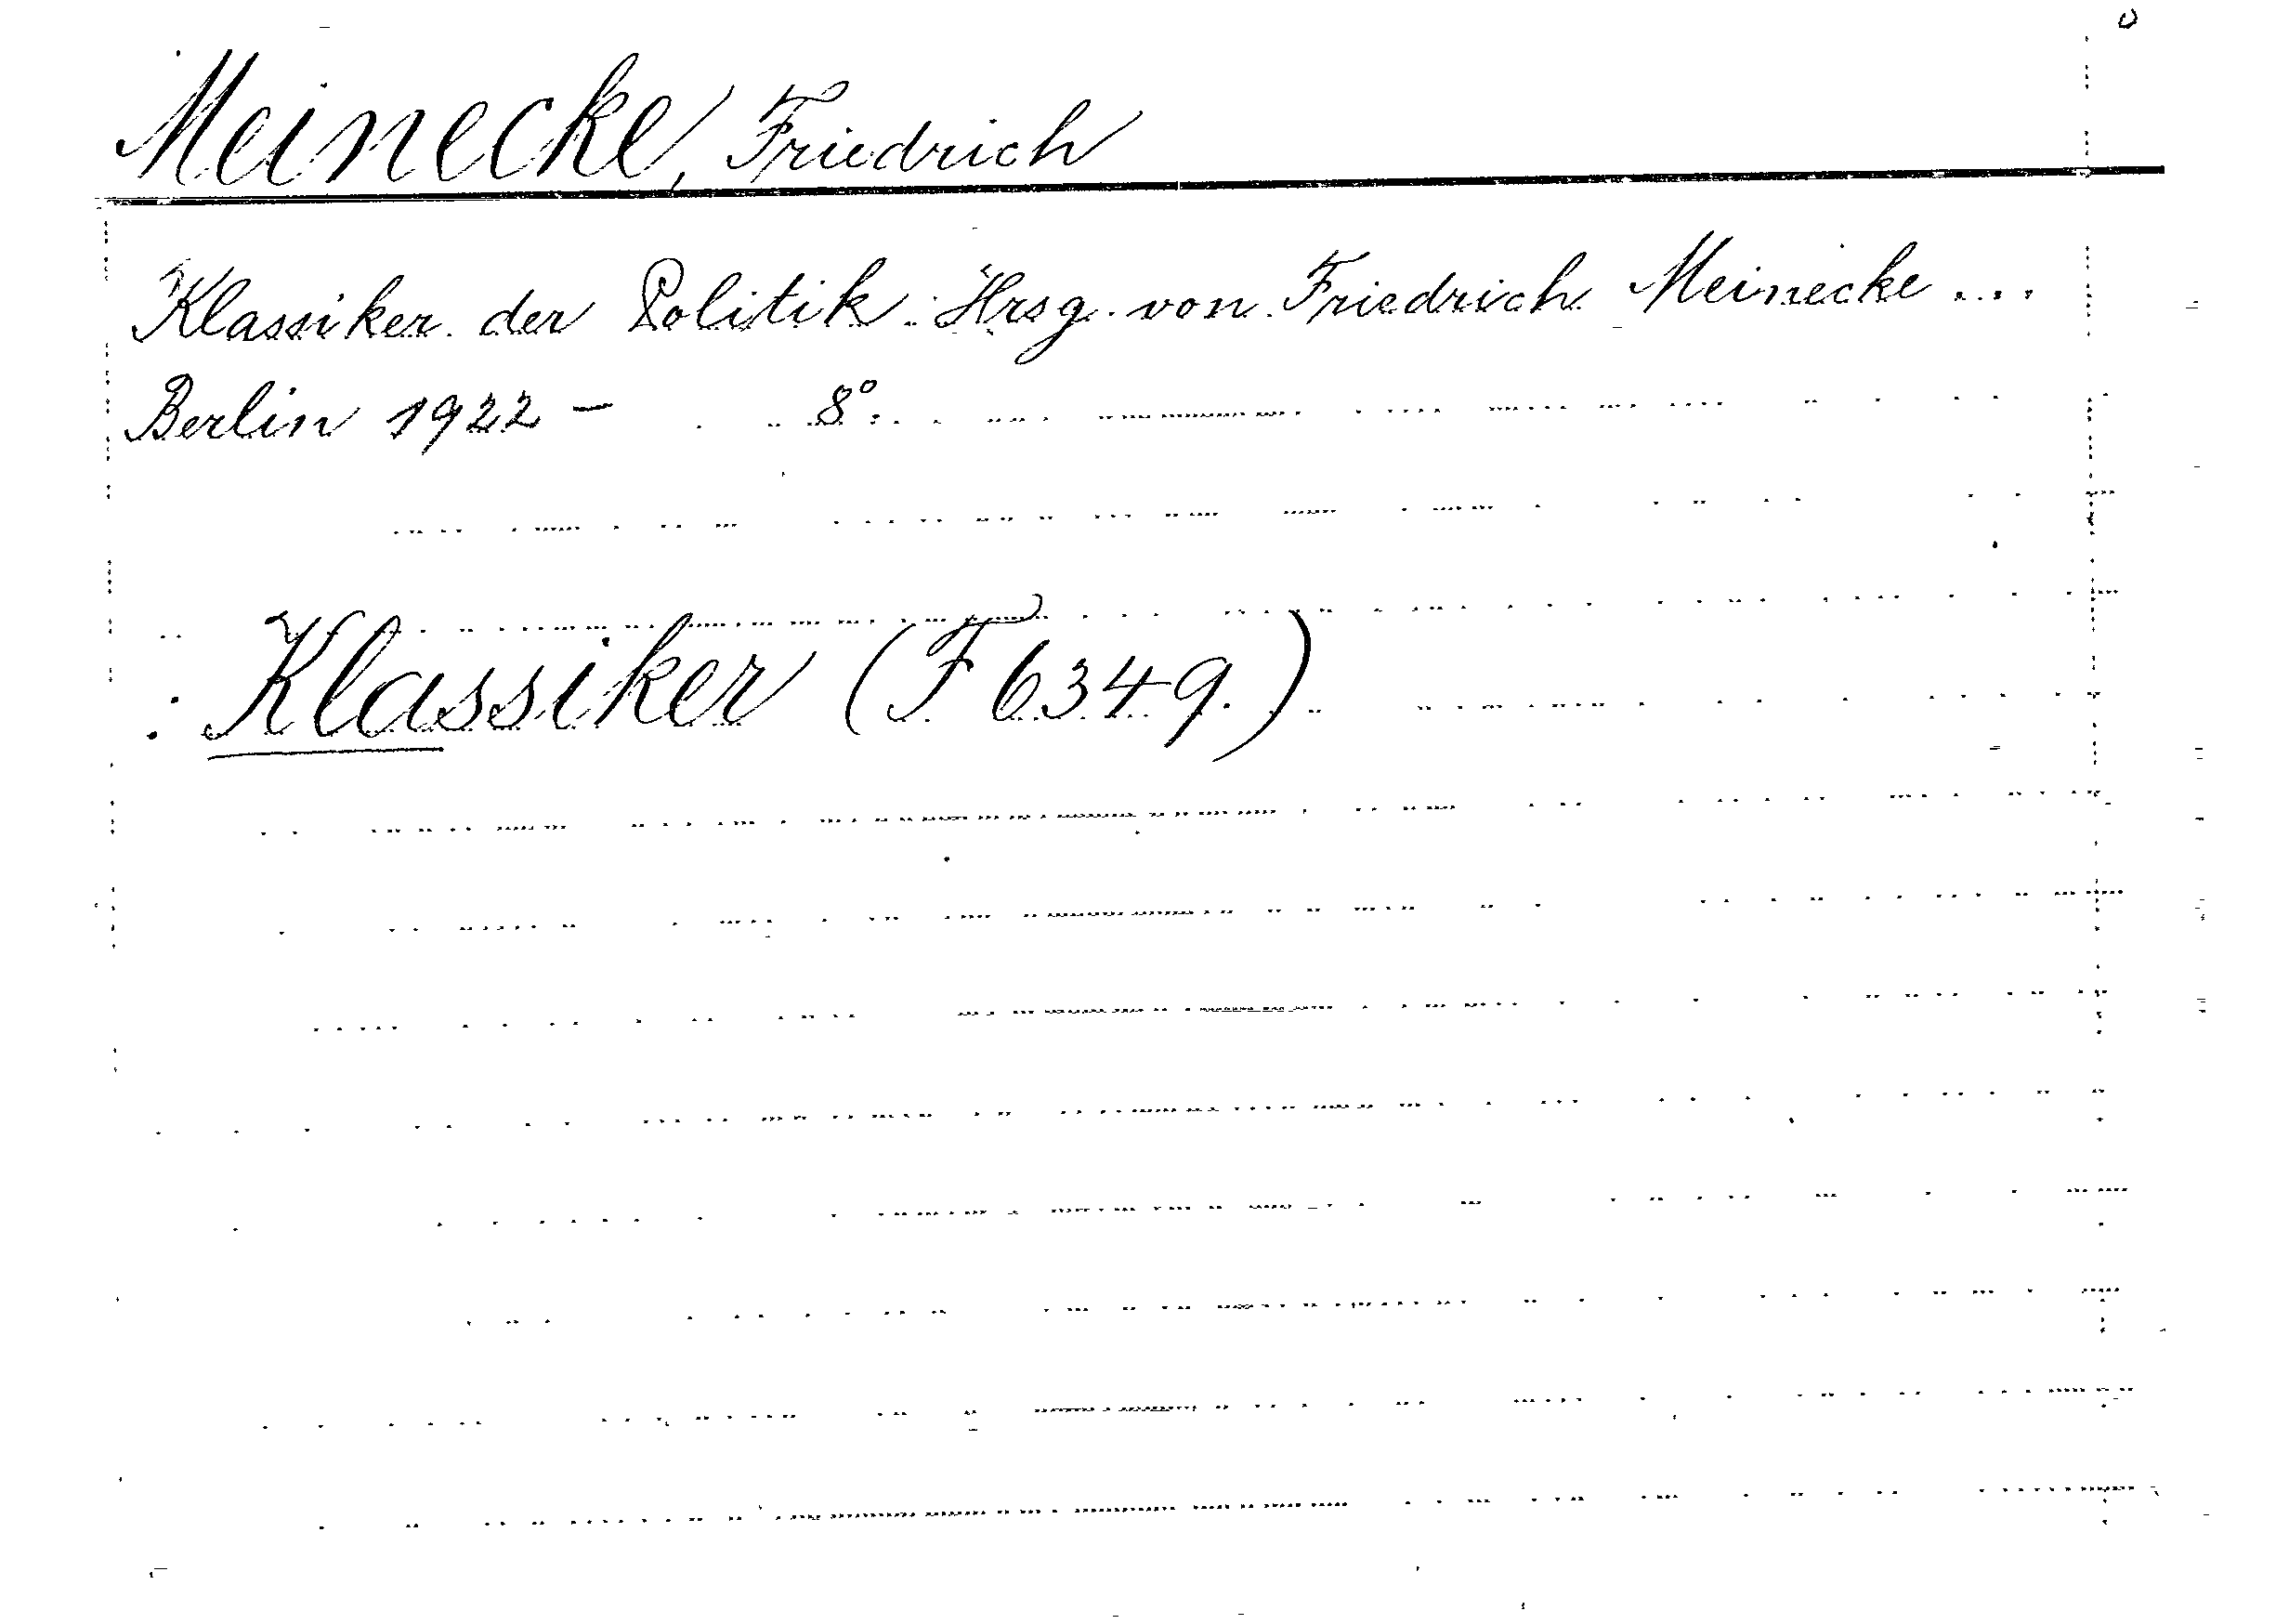 Meinecke, Friedrich
Klassiker der Politik. Hrsg. von Friedrich Meinecke ...
Berlin 1922 – 8°.
: Klassiker (F 6349.)